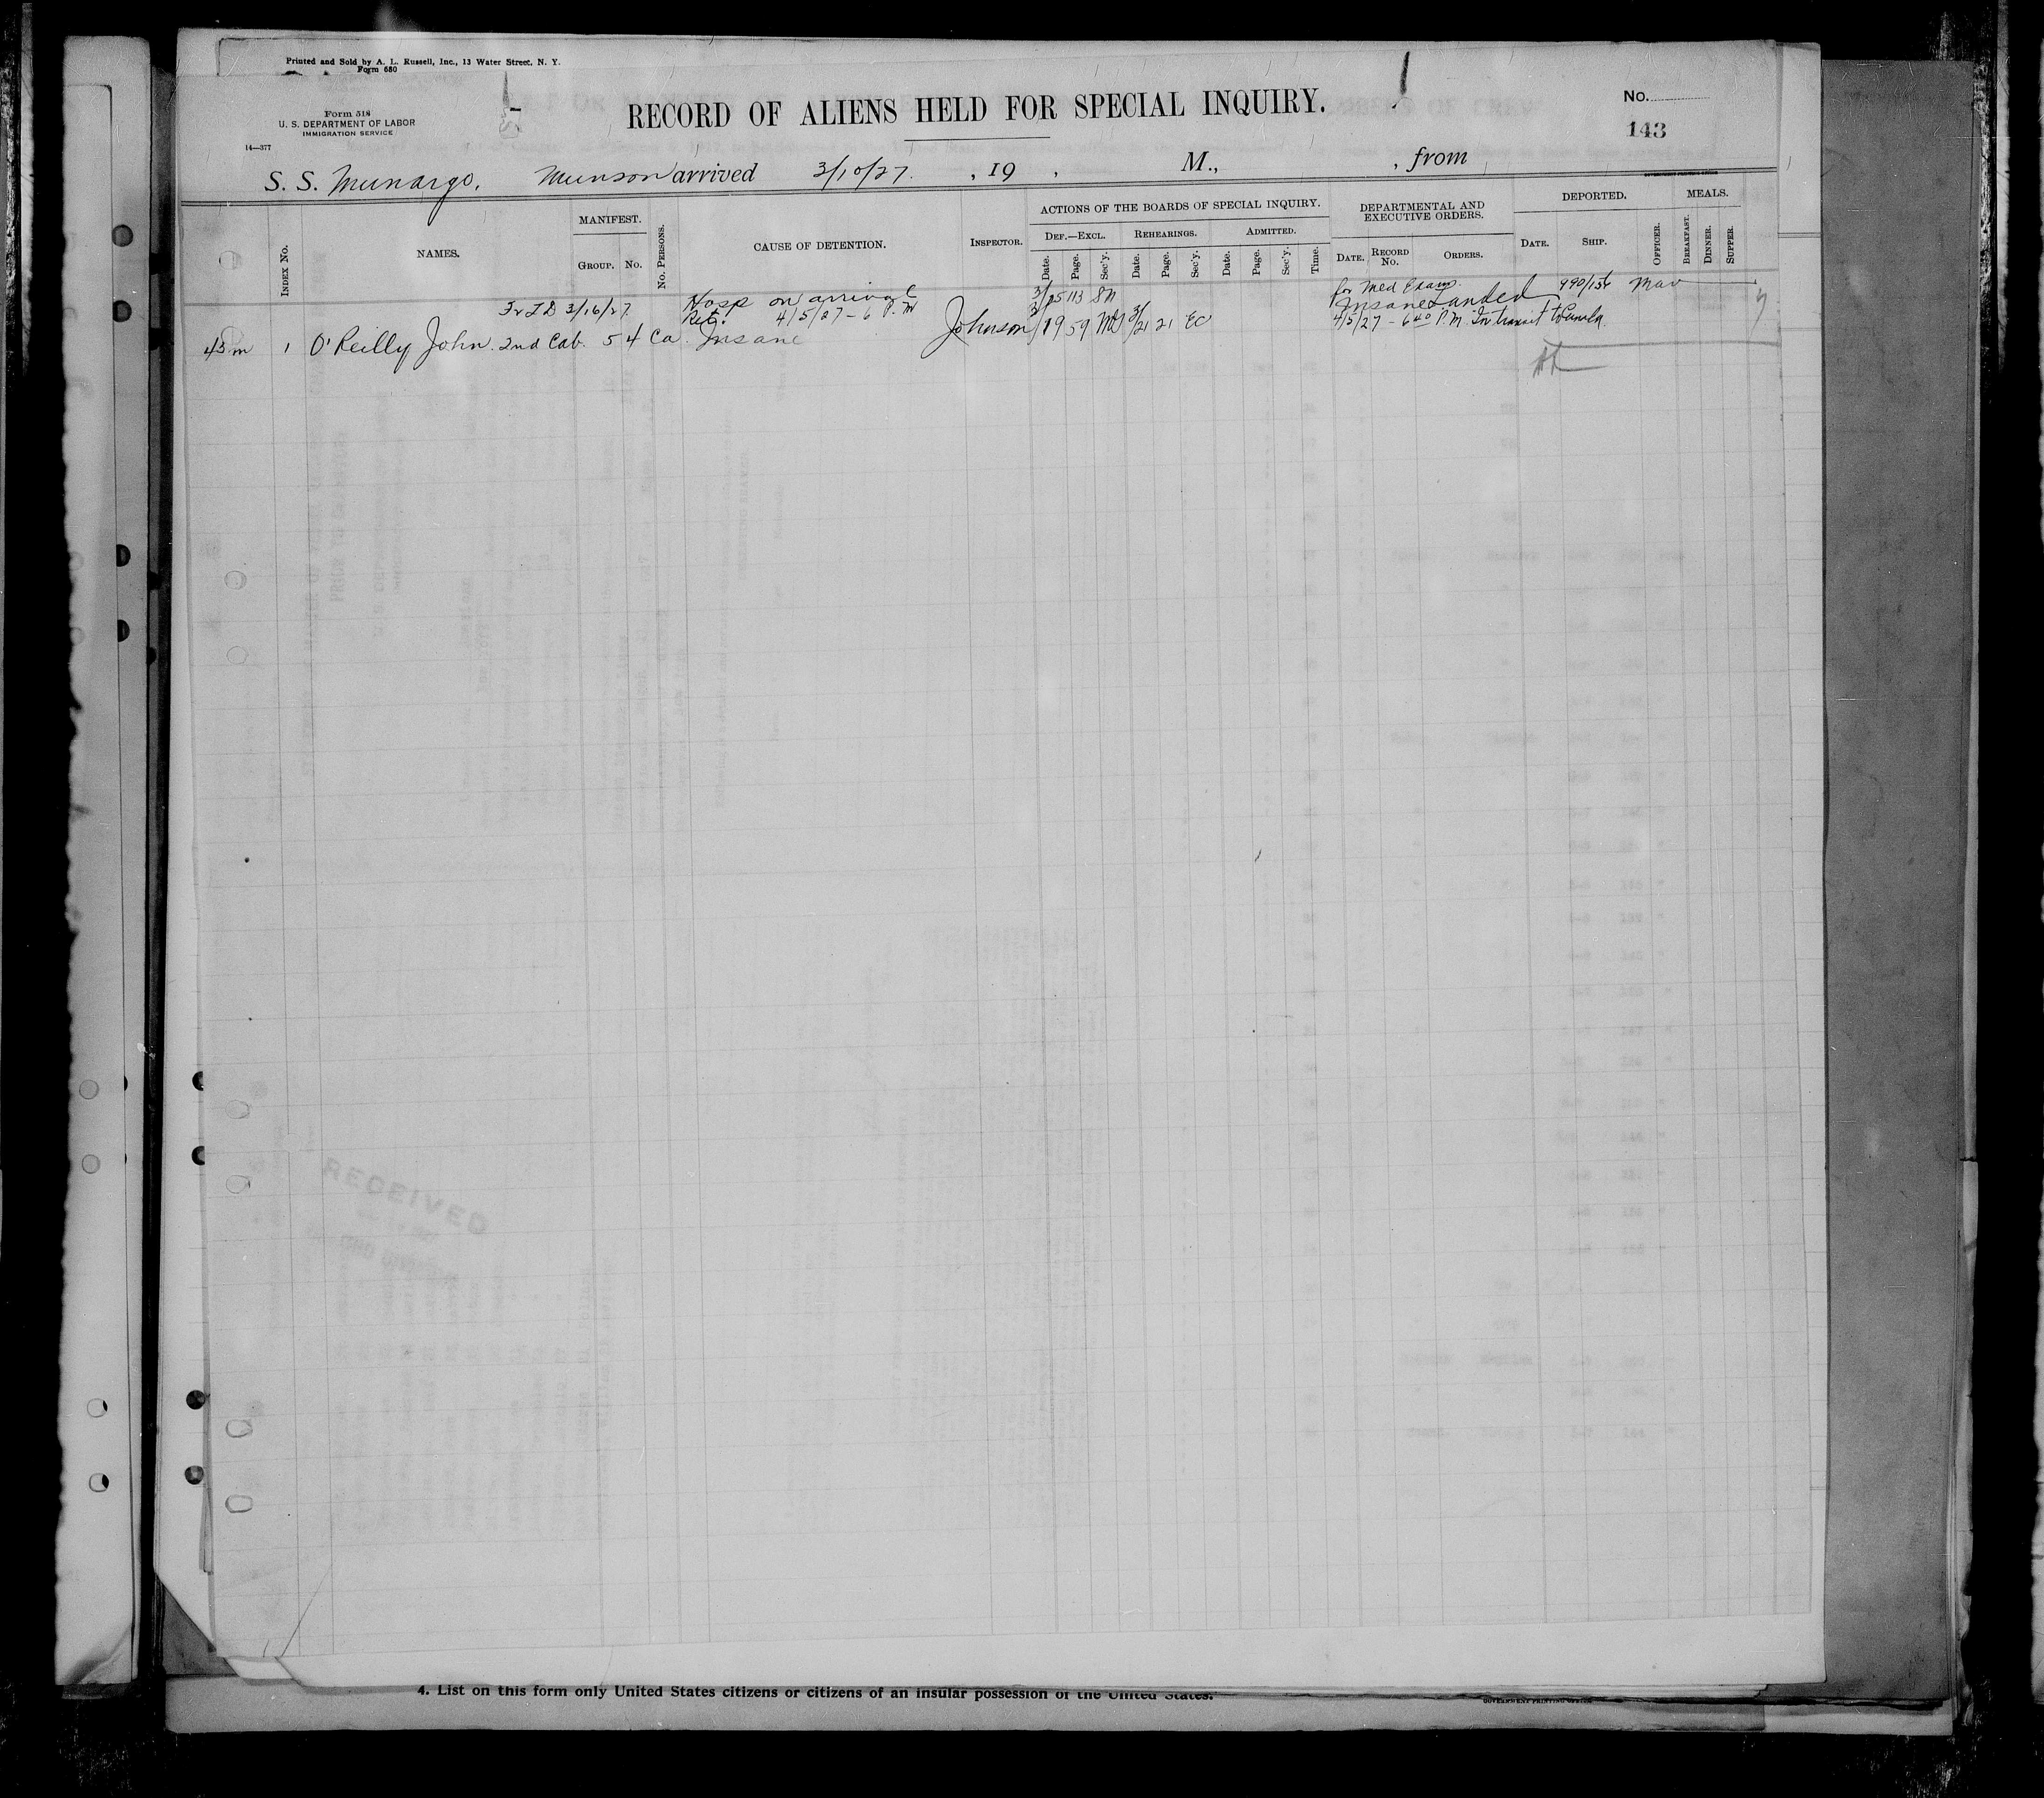 Printed and Sold by A. L. Russell, Inc., 13 Water Street, N. Y.
Form 680
Form 518
U. S. DEPARTMENT OF LABOR
IMMIGRATION SERVICE
14—377
RECORD OF ALIENS HELD FOR SPECIAL INQUIRY.
No.
143
S. S. Munargo, Munson arrived 3/10/27. , 19 , M., , from
GOVERNMENT PRINTING OFFICE
INDEX No.
NAMES.
MANIFEST.
GROUP.
No.
No. PERSONS.
CAUSE OF DETENTION.
INSPECTOR.
ACTIONS OF THE BOARDS OF SPECIAL INQUIRY.
DEF.—EXCL.
REHEARINGS.
ADMITTED.
Date. Page. Sec'y. Date. Page. Sec'y. Date. Page. Sec'y. Time.
DEPARTMENTAL AND EXECUTIVE ORDERS.
DATE. RECORD No. ORDERS.
DEPORTED.
DATE. SHIP. OFFICER.
MEALS.
BREAKFAST. DINNER. SUPPER.
Hosp on arrival 3/15 113 for Med Exam. 990/156
3/16/27 4/5/27 - 6 P. M Insane Landed
45 m 1 O'Reilly John. 2nd Cab. 5 4 Ca. Insane Johnson 3/19 59 3/21 21 EC 4/5/27 - 6 40 P.M. In transit to
RECEIVED
4. List on this form only United States citizens or citizens of an insular possession of the United States.
GOVERNMENT PRINTING OFFICE